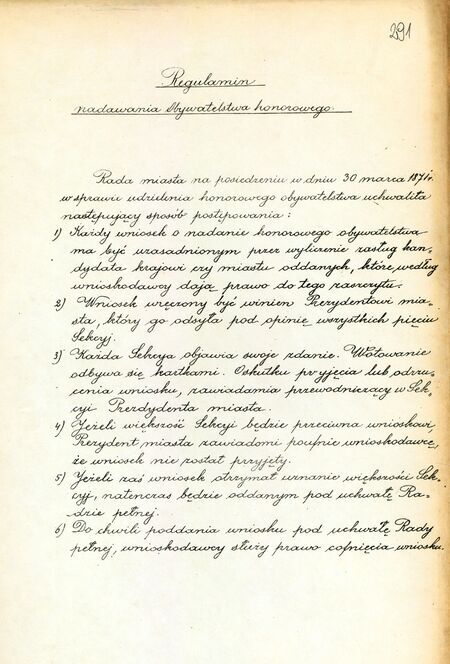 291
Regulamin
nadawania Obywatelstwa honorowego.
Rada miasta na posiedzeniu w dniu 30 marca 1871 r.
w sprawie udzielenia honorowego obywatelstwa uchwaliła
następujący sposób postępowania:
1) Każdy wniosek o nadanie honorowego obywatelstwa
ma być uzasadnionym przez wyliczenie zasług kan-
dydata krajowi czy miastu oddanych, które według
wnioskodawcy dają prawo do tego zaszczytu.
2) Wniosek wręczony być winien Prezydentowi mia-
sta, który go odsyła pod opinię wszystkich pięciu
Sekcyj.
3) Każda Sekcya objawia swoje zdanie. Wotowanie
odbywa się kartkami. O skutku przyjęcia lub odrzu-
cenia wniosku, zawiadamia przewodniczący w Sek-
cyi Prezdydenta miasta.
4) Jeżeli większość Sekcyi będzie przeciwna wnioskowi,
Prezydent miasta zawiadomi poufnie wnioskodawcę,
że wniosek nie został przyjęty.
5) Jeżeli zaś wniosek otrzymał uznanie większości Sek-
cyj, natenczas będzie oddanym pod uchwałę Ra-
dzie pełnej.
6) Do chwili poddania wniosku pod uchwałę Rady
pełnej, wnioskodawcy służy prawo cofnięcia wniosku.